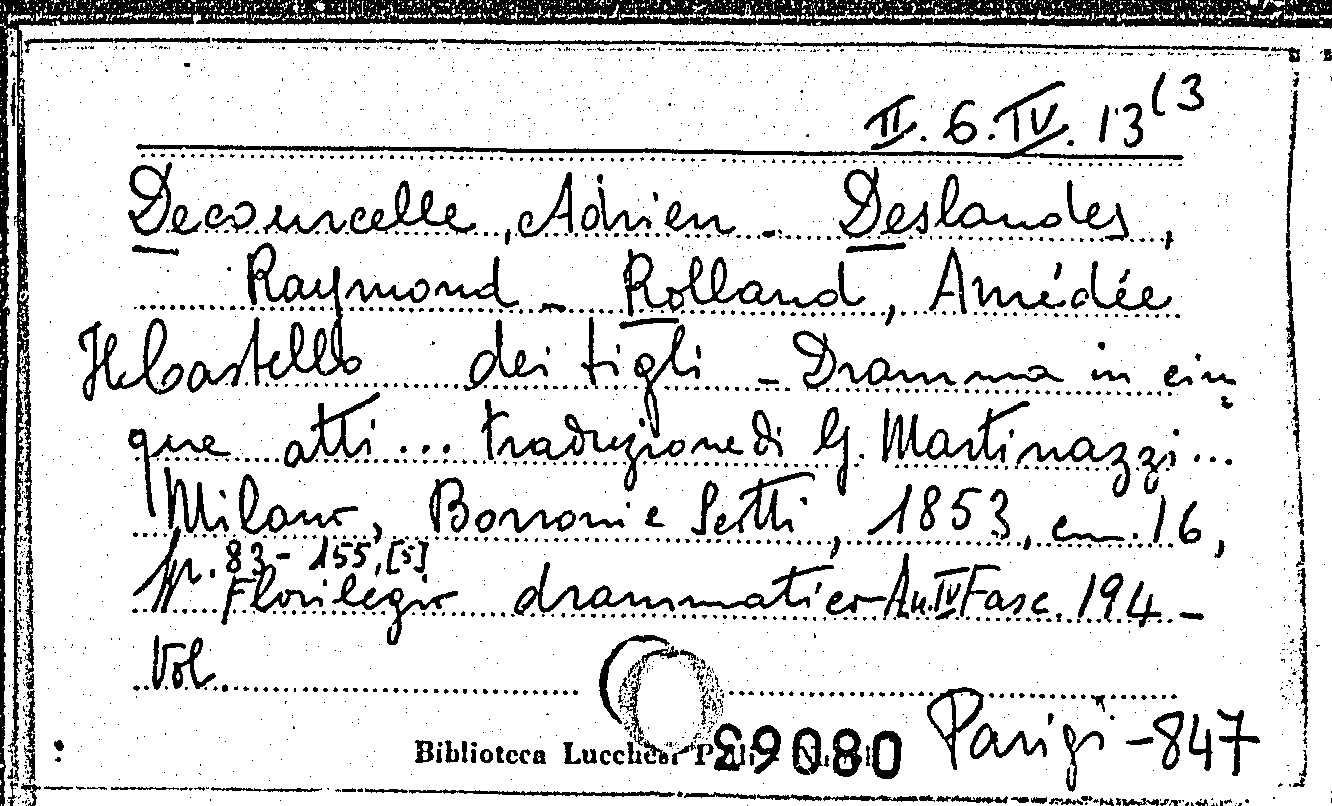 II. 6. IV. 13(3
Decourcelle, Adrien - Deslandes,
Raymond - Rolland, Amédée
Il Castello dei tigli - Dramma in cin
que atti... traduzione di G. Martinazzi...
Milano, Borroni e Scotti, 1853, in. 16,
pp. 83 - 155, [5]
Florilegio drammatico - An. IV Fasc. 194 -
Vol.
Biblioteca Lucchesi
39080
Parigi - 847